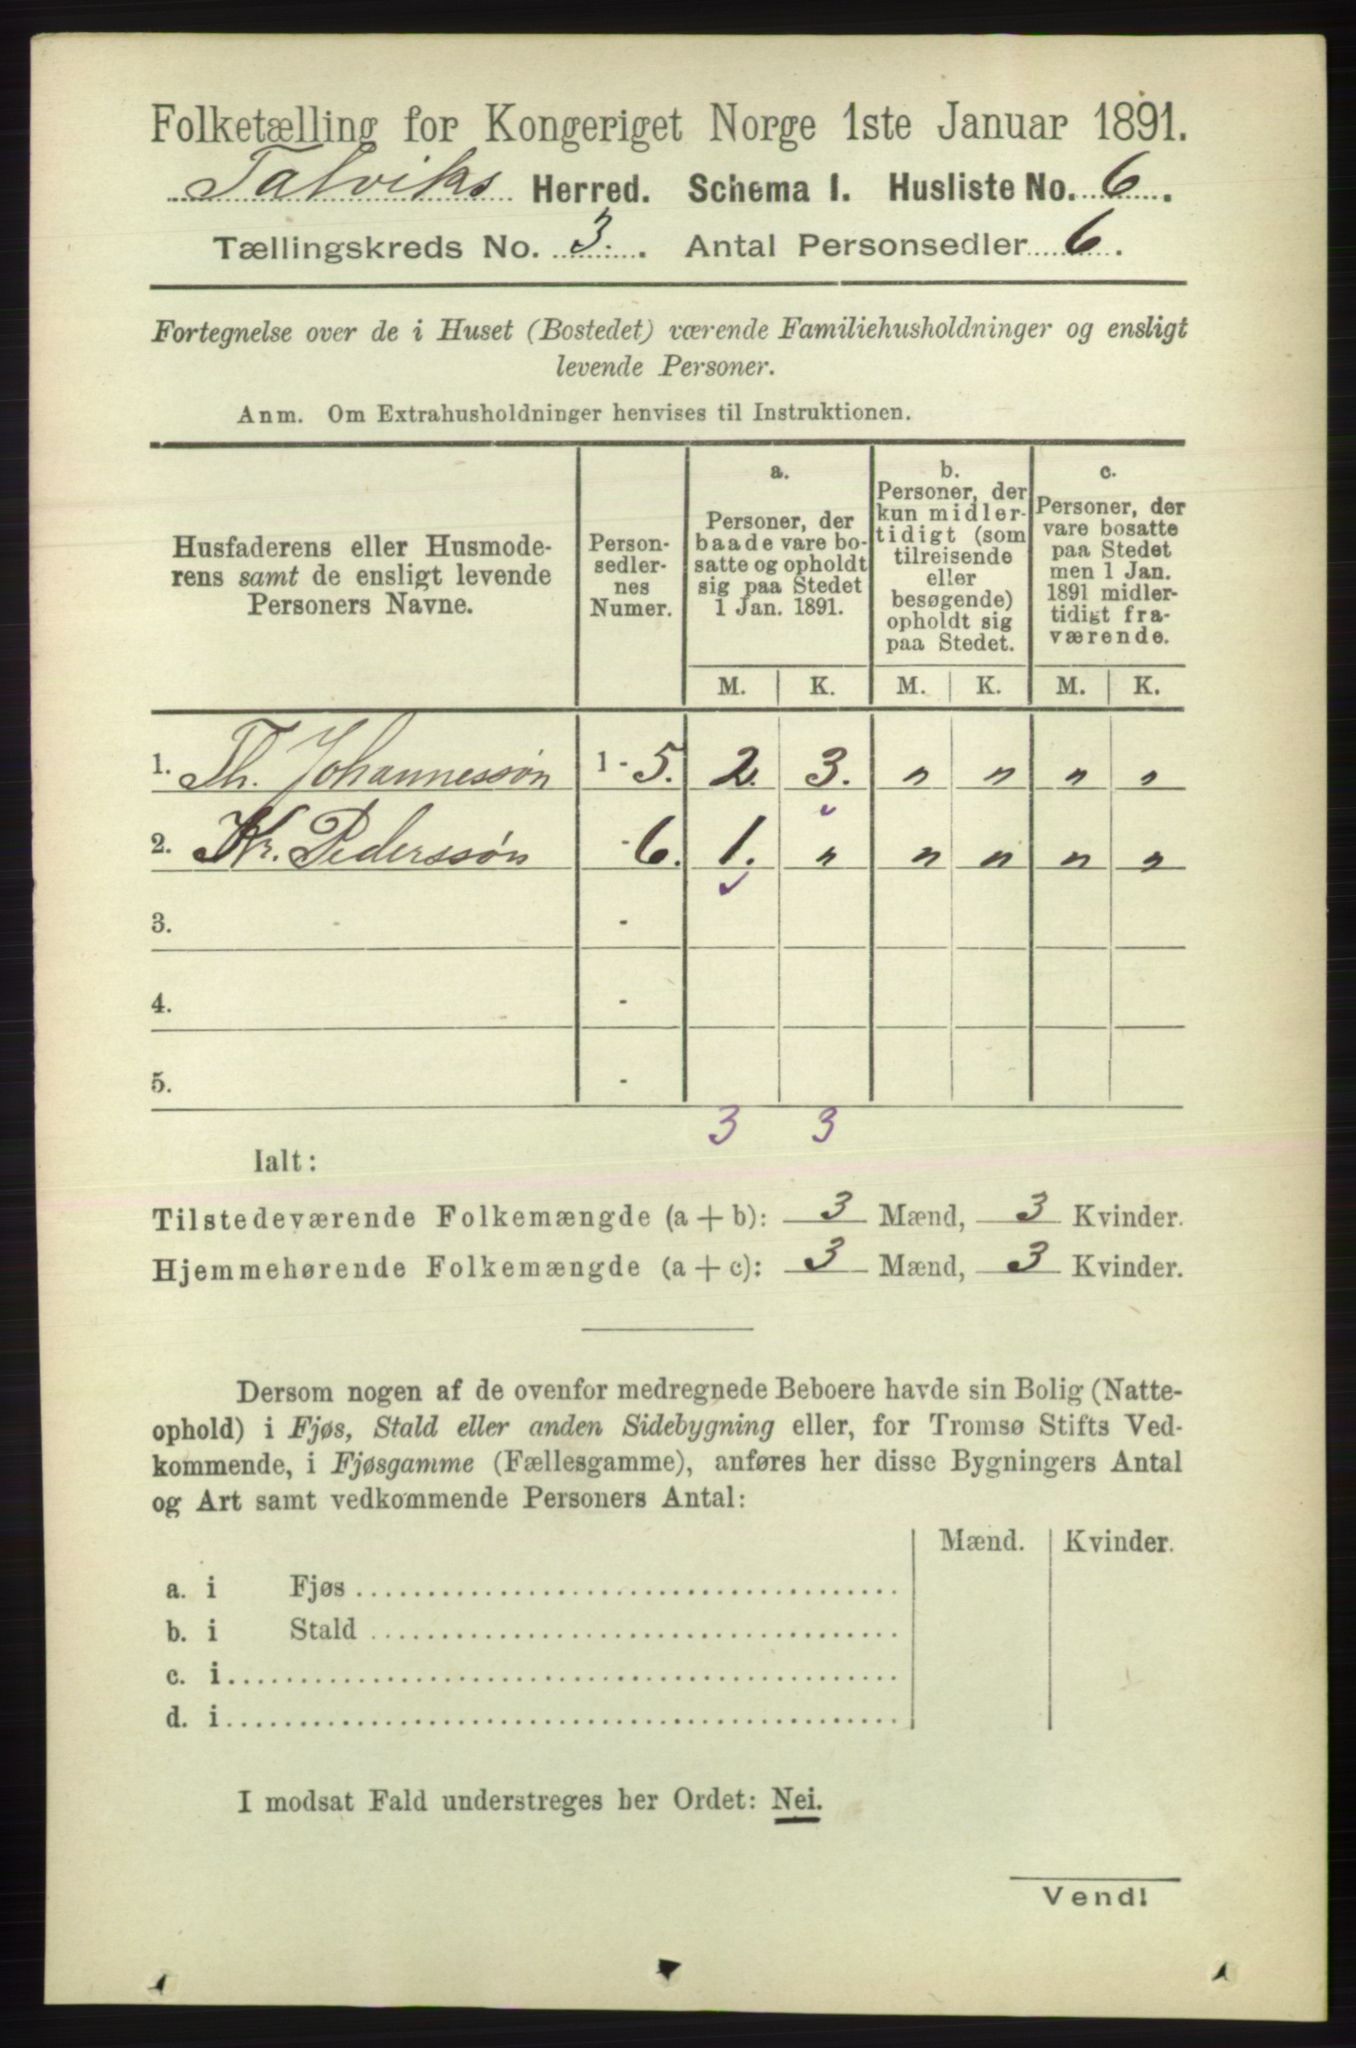 Folketælling for Kongeriget Norge 1ste Januar 1891.
Talviks Herred. Schema 1. Husliste No. 6.
Tællingskreds No. 3. Antal Personsedler 6.
Fortegnelse over de i Huset (Bostedet) værende Familiehusholdninger og ensligt
levende Personer.
Anm. Om Extrahusholdninger henvises til Instruktionen.
Husfaderens eller Husmode-
rens samt de ensligt levende
Personers Navne.
Person-
sedler-
nes
Numer.
a.
Personer, der
baade vare bo-
satte og opholdt
sig paa Stedet
1 Jan. 1891.
b.
Personer, der
kun midler-
tidigt (som
tilreisende
eller
besøgende)
opholdt sig
paa Stedet.
c.
Personer, der
vare bosatte
paa Stedet
men 1 Jan.
1891 midler-
tidigt fra-
værende.
M. K. M. K. M. K.
1. Th. Johannessøn 1 - 5. 2. 3. " " " "
2. Kr. Pederssøn - 6. 1. " " " " "
3. -
4. -
5. -
3 3
Ialt:
Tilstedeværende Folkemængde (a + b): 3 Mænd, 3 Kvinder.
Hjemmehørende Folkemængde (a + c): 3 Mænd, 3 Kvinder.
Dersom nogen af de ovenfor medregnede Beboere havde sin Bolig (Natte-
ophold) i Fjøs, Stald eller anden Sidebygning eller, for Tromsø Stifts Ved-
kommende, i Fjøsgamme (Fællesgamme), anføres her disse Bygningers Antal
og Art samt vedkommende Personers Antal:
Mænd. Kvinder.
a. i Fjøs
b. i Stald
c. i
d. i
I modsat Fald understreges her Ordet: Nei.
Vend!